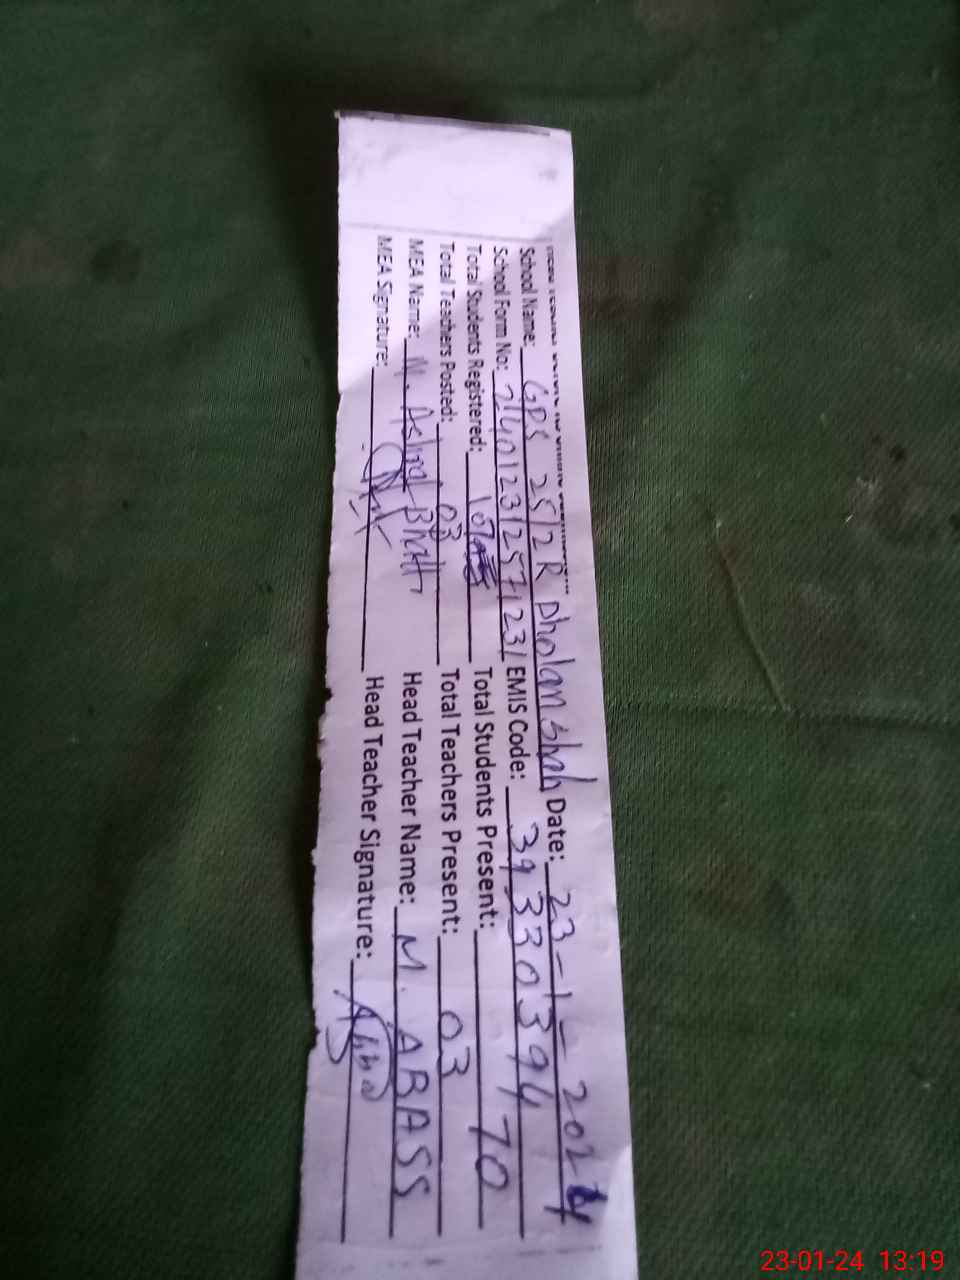 School Name: GPS 25/2R Dholan Shah Date: 23-1-2024
School Form No: EMIS Code: 39330394
Total Students Registered: 107 Total Students Present: 70
Total Teachers Posted: 03 Total Teachers Present: 03
MEA Name: M. Ashraf Bhatti Head Teacher Name: M. ABASS
MEA Signature: Head Teacher Signature:
23-01-24 13:19